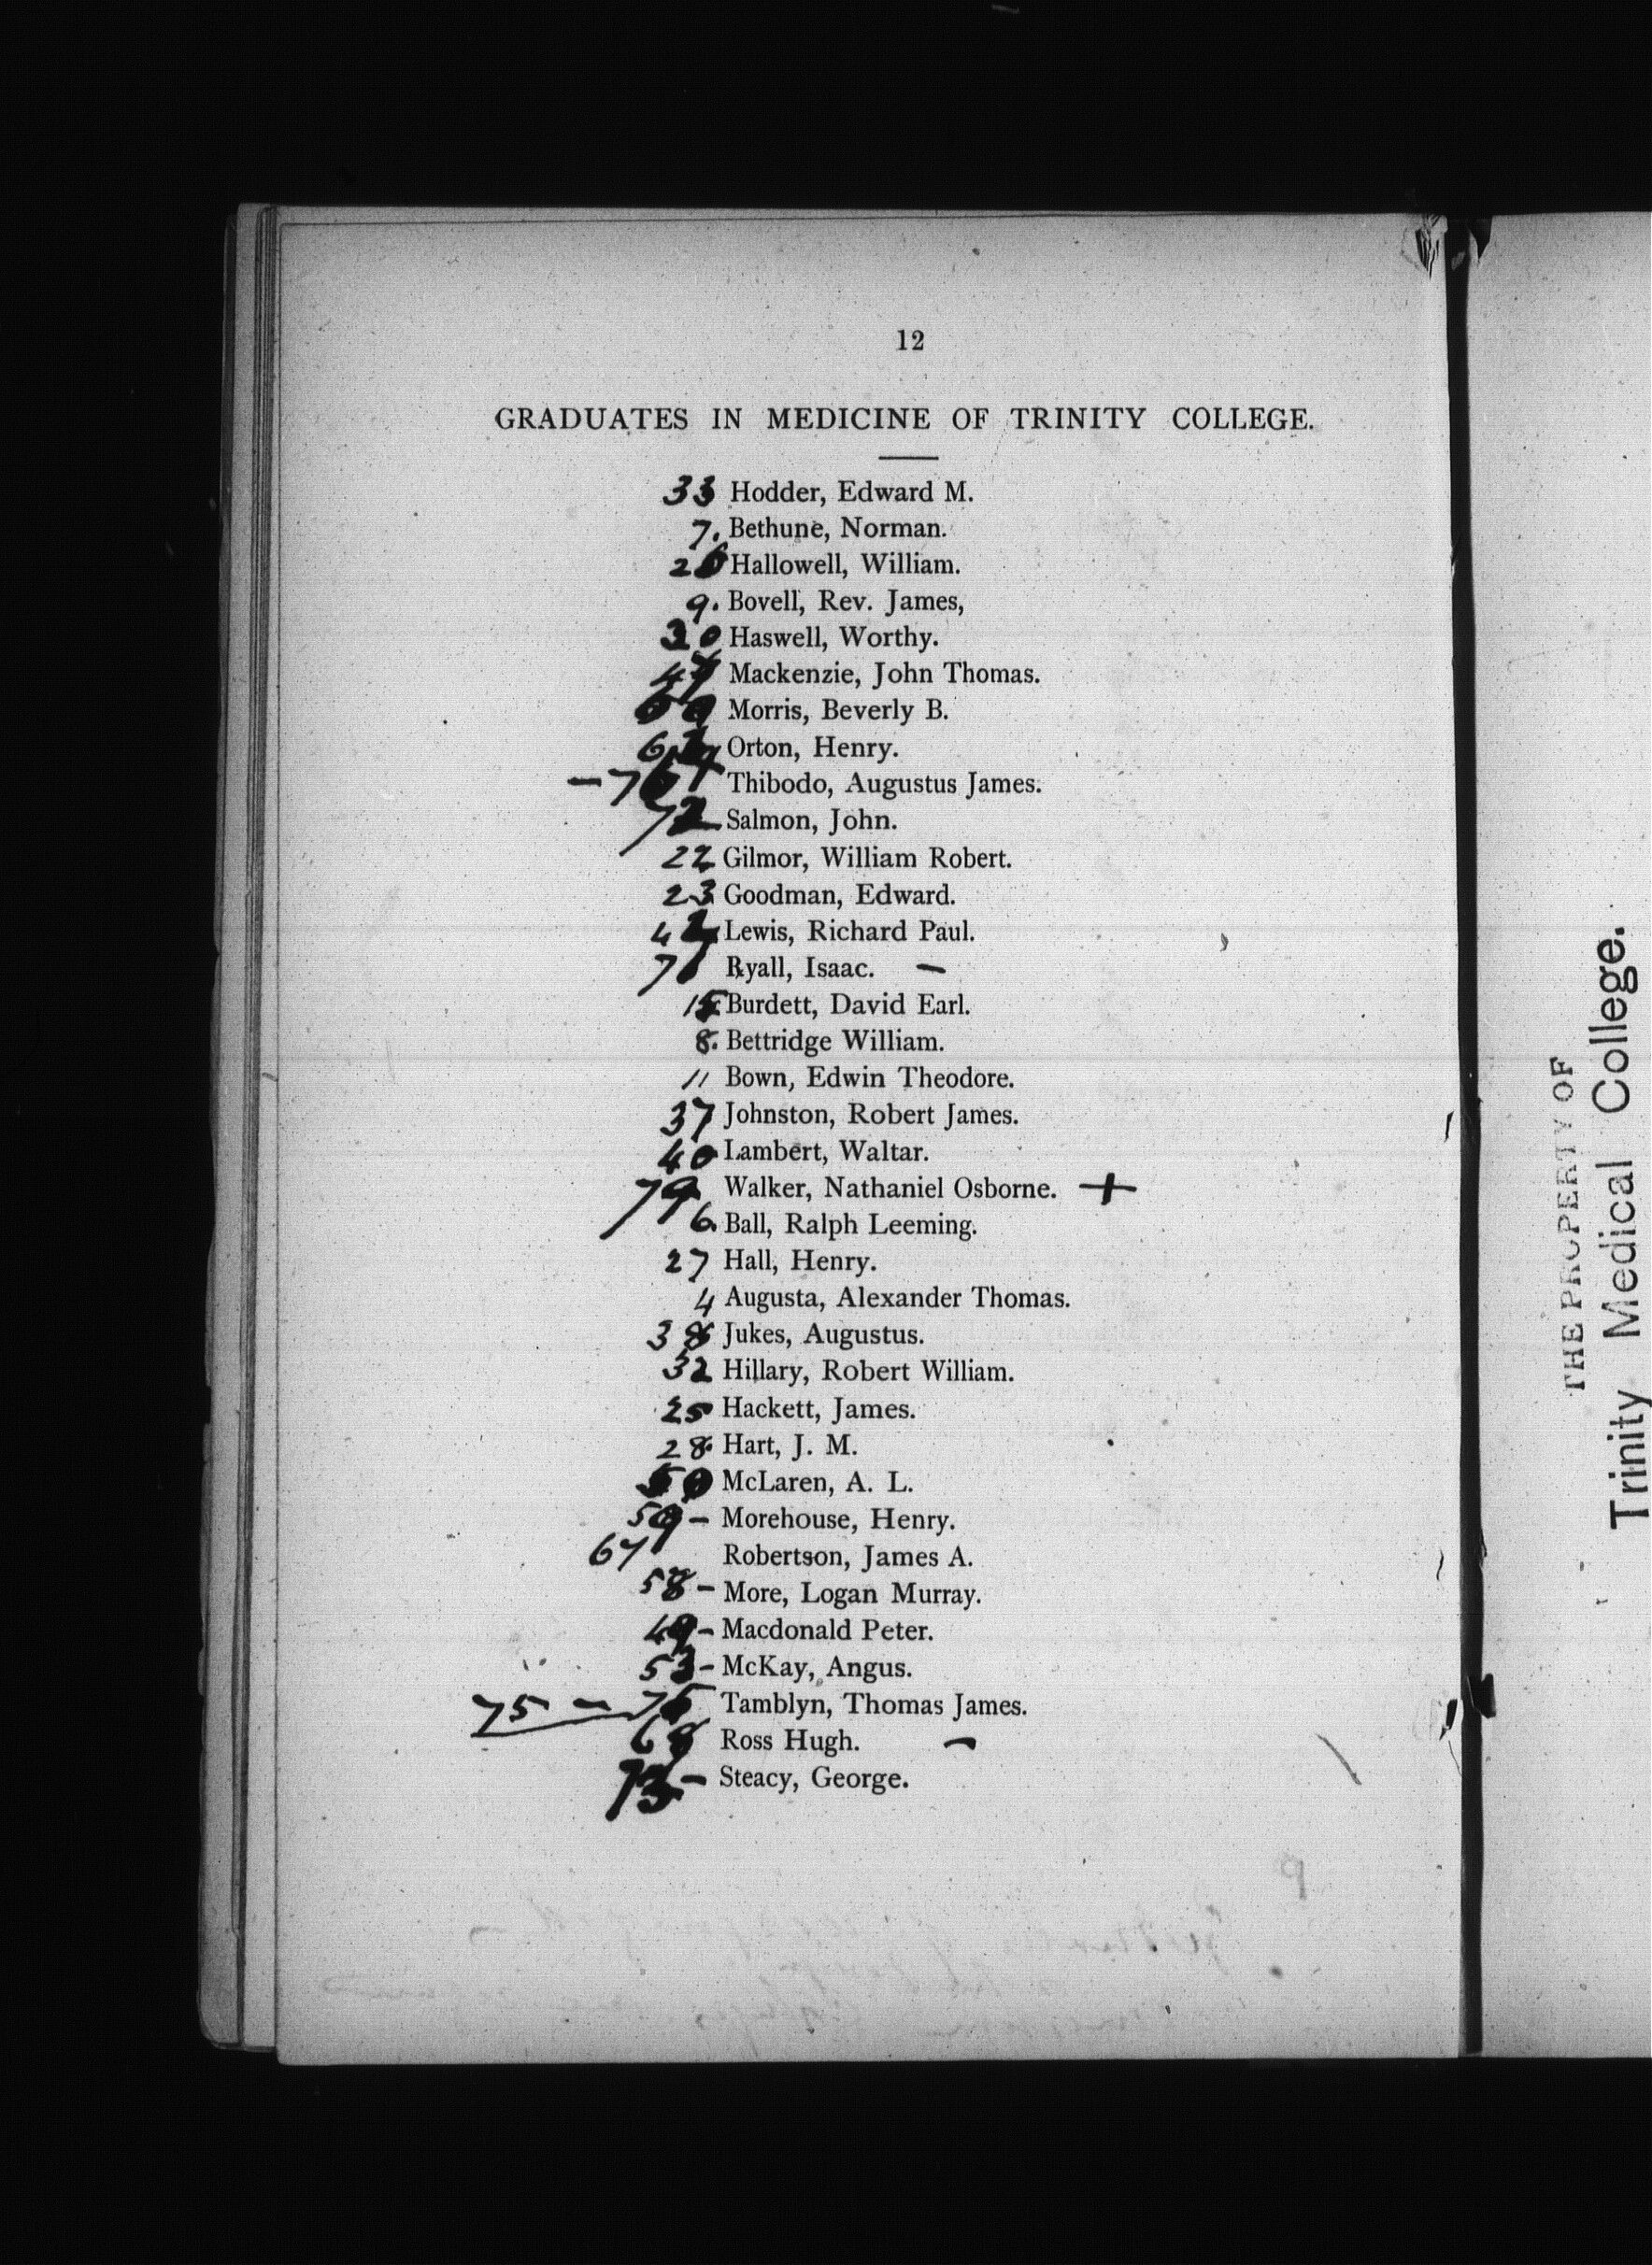 12
GRADUATES IN MEDICINE OF TRINITY COLLEGE.
33 Hodder, Edward M.
7. Bethune, Norman.
Hallowell, William.
9. Bovell, Rev. James,
30 Haswell, Worthy.
Mackenzie, John Thomas.
Morris, Beverly B.
Orton, Henry.
Thibodo, Augustus James.
72 Salmon, John.
22 Gilmor, William Robert.
23 Goodman, Edward.
Lewis, Richard Paul.
71 Ryall, Isaac. –
15 Burdett, David Earl.
8. Bettridge William.
11 Bown, Edwin Theodore.
37 Johnston, Robert James.
40 Lambert, Waltar.
79 Walker, Nathaniel Osborne. +
6. Ball, Ralph Leeming.
27 Hall, Henry.
4 Augusta, Alexander Thomas.
38 Jukes, Augustus.
32 Hillary, Robert William.
25 Hackett, James.
28. Hart, J. M.
McLaren, A. L.
59 – Morehouse, Henry.
67 Robertson, James A.
58 – More, Logan Murray.
49 – Macdonald Peter.
53 – McKay, Angus.
75 – 75 Tamblyn, Thomas James.
68 Ross Hugh. –
73 – Steacy, George.
THE PROPERTY OF
Trinity Medical College.